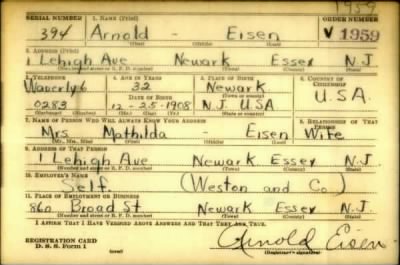 1959
SERIAL NUMBER 1. NAME (Print) ORDER NUMBER
394 Arnold - Eisen V 1959
(First) (Middle) (Last)
2. ADDRESS (Print)
1 Lehigh Ave Newark Essex N.J.
(Number and street or R. F. D. number) (Town) (County) (State)
3. TELEPHONE 4. AGE IN YEARS 5. PLACE OF BIRTH 6. COUNTRY OF CITIZENSHIP
Waverly 6 32 Newark
DATE OF BIRTH U.S.A.
0283 12-25-1908 N.J. USA
(Exchange) (Number) (Mo.) (Day) (Yr.) (State or country)
7. NAME OF PERSON WHO WILL ALWAYS KNOW YOUR ADDRESS 8. RELATIONSHIP OF THAT PERSON
Mrs. Mathilda - Eisen Wife
(Mr., Mrs., Miss) (First) (Middle) (Last)
9. ADDRESS OF THAT PERSON
1 Lehigh Ave Newark Essex N.J.
(Number and street or R. F. D. number) (Town) (County) (State)
10. EMPLOYER'S NAME
Self. (Weston and Co.)
11. PLACE OF EMPLOYMENT OR BUSINESS
860 Broad St Newark Essex N.J.
(Number and street or R. F. D. number) (Town) (County) (State)
I AFFIRM THAT I HAVE VERIFIED ABOVE ANSWERS AND THAT THEY ARE TRUE.
REGISTRATION CARD
D. S. S. Form 1 (over) Arnold Eisen
(Registrant's signature)